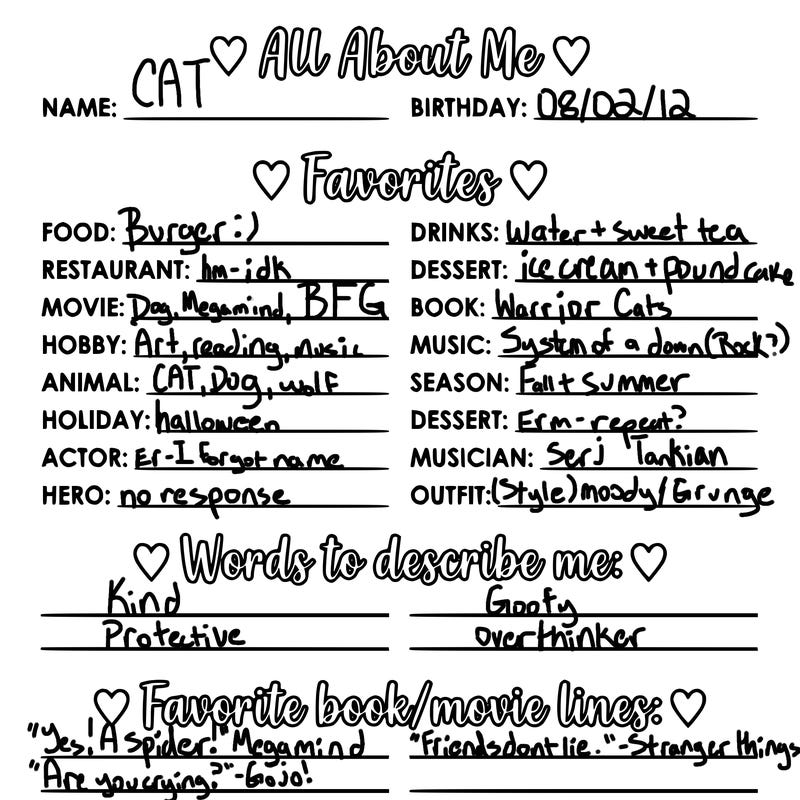 All About Me
NAME: CAT BIRTHDAY: 08/02/12
Favorites
FOOD: Burger :) DRINKS: Water + sweet tea
RESTAURANT: hm-idk DESSERT: ice cream + pound cake
MOVIE: Dog, Megamind, BFG BOOK: Warrior Cats
HOBBY: Art, reading, music MUSIC: System of a down (Rock?)
ANIMAL: CAT, Dog, wolf SEASON: Fall + summer
HOLIDAY: halloween DESSERT: Erm-repeat?
ACTOR: Er-I forgot name MUSICIAN: Serj Tankian
HERO: no response OUTFIT: (Style) moody/Grunge
Words to describe me:
Kind Goofy
Protective overthinker
Favorite book/movie lines:
"Yes! A spider!" Megamind "Friends dont lie."-Stranger things
"Are you crying?"-Gojo!